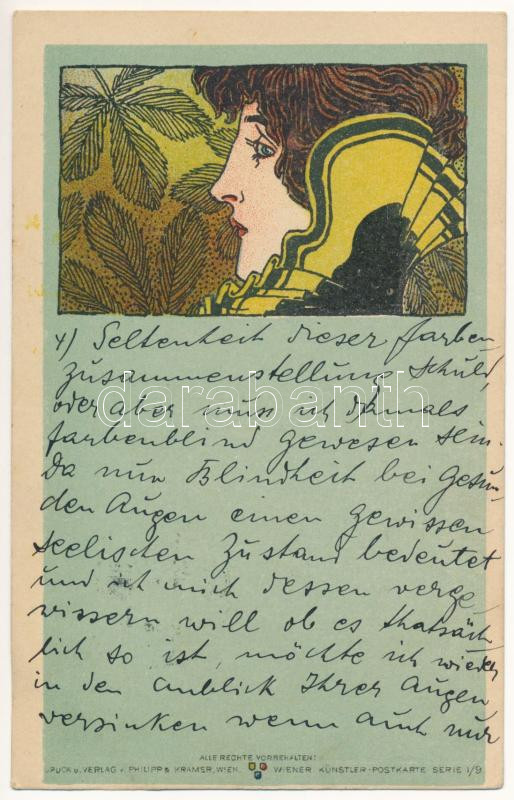 4) Seltenheit dieser farben-
zusammenstellung schuld,
oder aber muss ich damals
farbenblind gewesen sein.
Da nun Blindheit bei gesun-
den Augen einen gewissen
seelischen Zustand bedeutet
und ich mich dessen verge-
wissern will ob es thatsäch-
lich so ist, möchte ich wieder
in den anblick Ihrer Augen
versinken wenn auch nur
darabanth
ALLE RECHTE VORBEHALTEN!
DRUCK U. VERLAG V. PHILIPP & KRAMER, WIEN. WIENER KÜNSTLER-POSTKARTE SERIE I/9